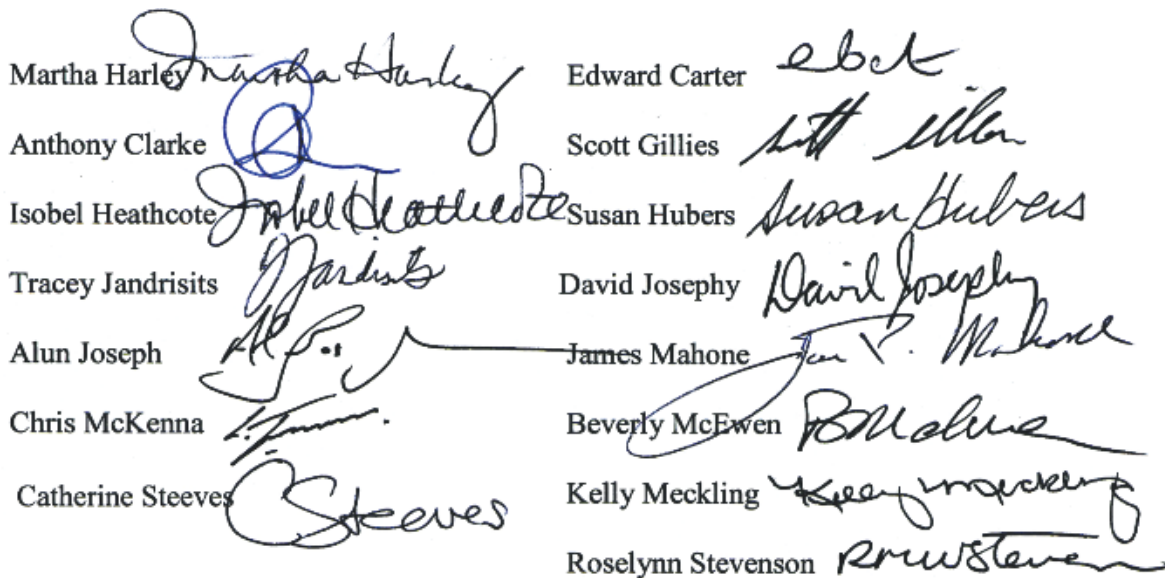 Martha Harley Martha Harley
Anthony Clarke
Isobel Heathcote Isobel Heathcote
Tracey Jandrisits
Alun Joseph
Chris McKenna
Catherine Steeves CSteeves
Edward Carter
Scott Gillies
Susan Hubers Susan Hubers
David Josephy David Josephy
James Mahone
Beverly McEwen
Kelly Meckling Kelly Meckling
Roselynn Stevenson